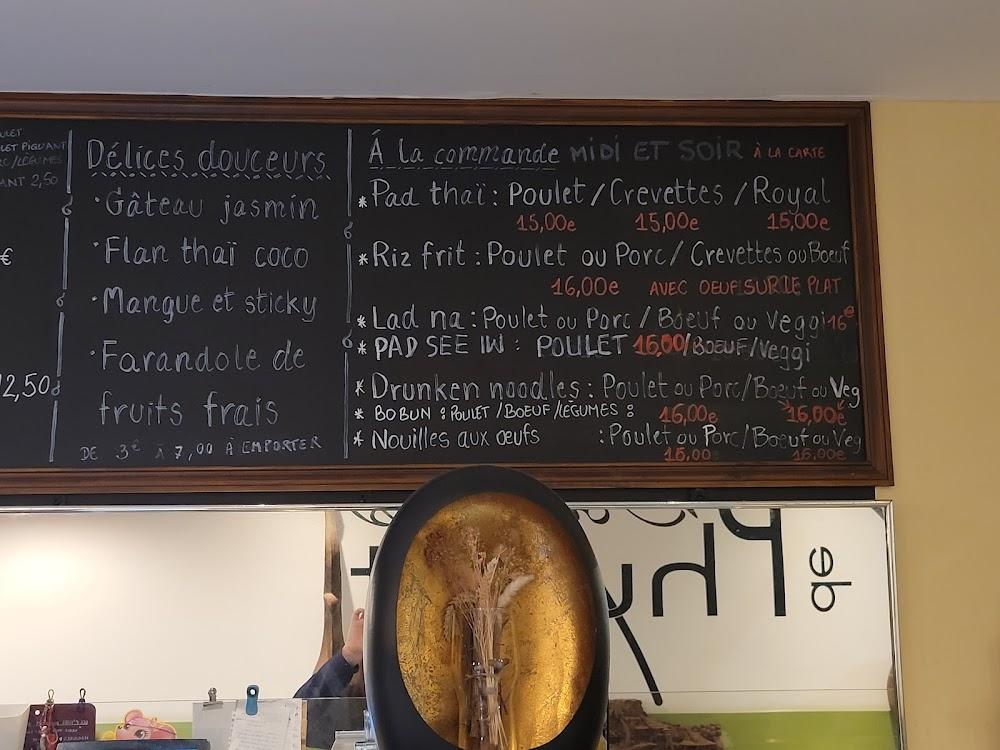 LET PIQUANT
ANT 2,50
€
12,50
Délices douceurs
· Gâteau jasmin
· Flan thaï coco
· Mangue et sticky
· Farandole de
fruits frais
DE 3€ à 7,00 À EMPORTER
Á la commande MIDI ET SOIR À LA CARTE
* Pad thaï : Poulet / Crevettes / Royal
15,00e 15,00e 15,00e
* Riz frit : Poulet ou Porc / Crevettes ou Boeuf
16,00e AVEC OEUF SUR LE PLAT
* Lad na : Poulet ou Porc / Boeuf ou Veggi 16e
* PAD SEE IW : POULET 16,00 / BOEUF / Veggi
* Drunken noodles : Poulet ou Porc / Boeuf ou Veg
* BOBUN : POULET / BOEUF / LÉGUMES : 16,00e 16,00e
* Nouilles aux œufs : Poulet ou Porc / Boeuf ou Veg
15,00 15,00e
de